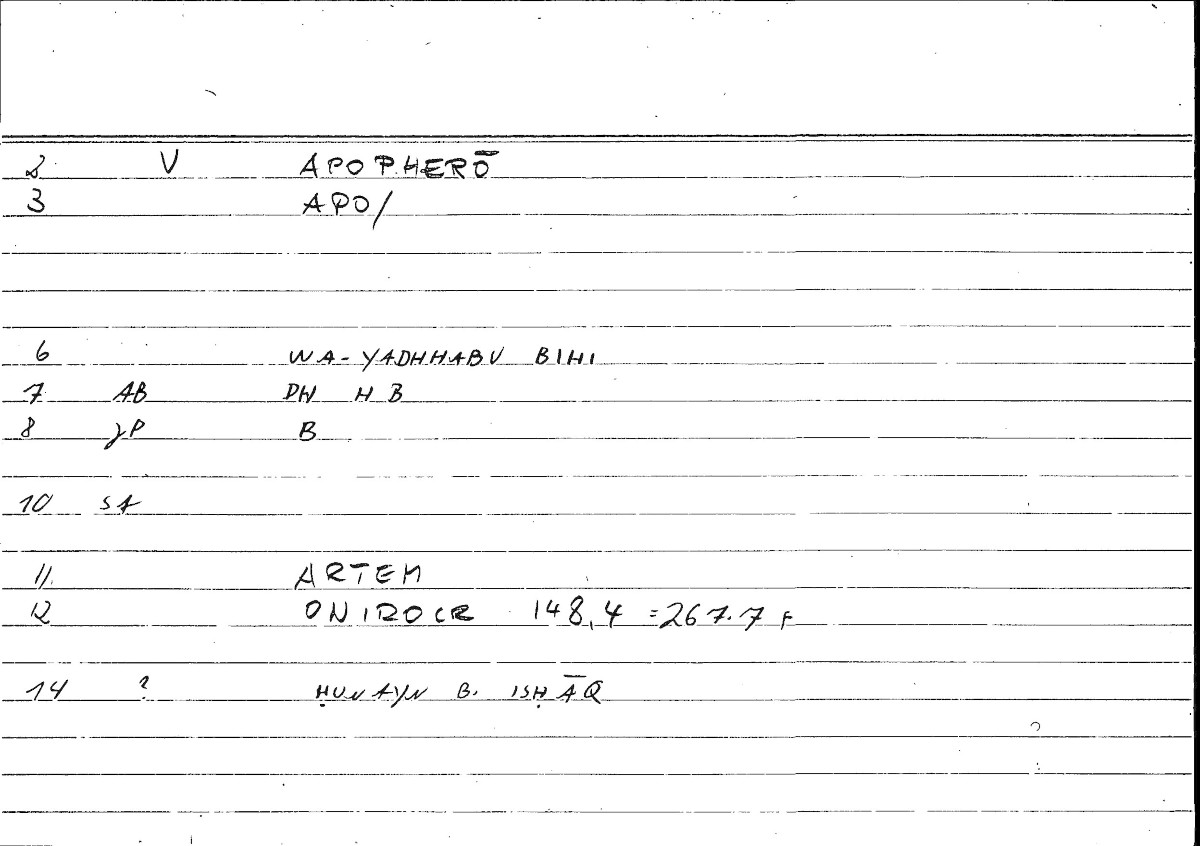 2 V APOPHERŌ
3 APO/
6 WA-YADHHABU BIHI
7 AB DH H B
8 JP B
10 SA
11. ARTEM
12 ONIROCR 148,4 =267.7 F
14 ? ḤUNAYN B. ISḤĀQ